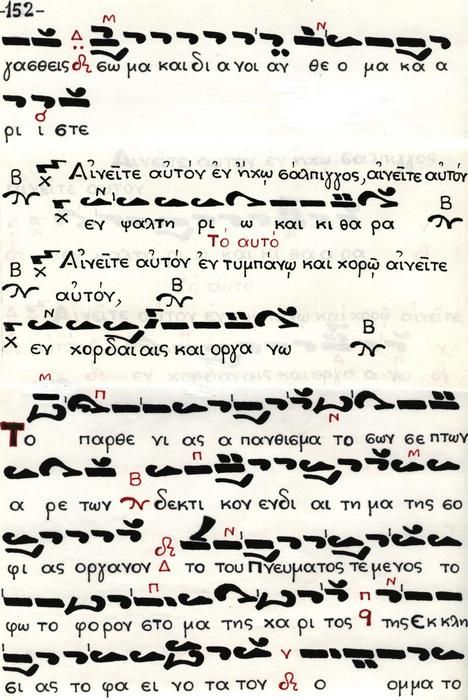 -152-
γασθεις σω μα και δι α γοι αν θε ο μα κα α
ρι ι στε
Αἰνεῖτε αὐτόν ἐν ἤχῳ σάλπιγγος, αἰνεῖτε αὐτόν
εν ψαλτη ρι ω και κι θα ρα
Τὸ αυτό
Αἰνεῖτε αὐτόν ἐν τυμπάνῳ καί χορῷ αἰνεῖτε
αὐτόν,
εν χορδαι αις και οργα νω
Το παρθε νι ας α πανθισμα το σων σε πτων
α ρε των δεκτι κον ενδι αι τη μα της σο
φι ας οργανον το του Πνευματος τε μενος το
φω το φορον στο μα της χα ρι τος της Εκ κλη
σι ας το φα ει νο τα τον ο ομμα το